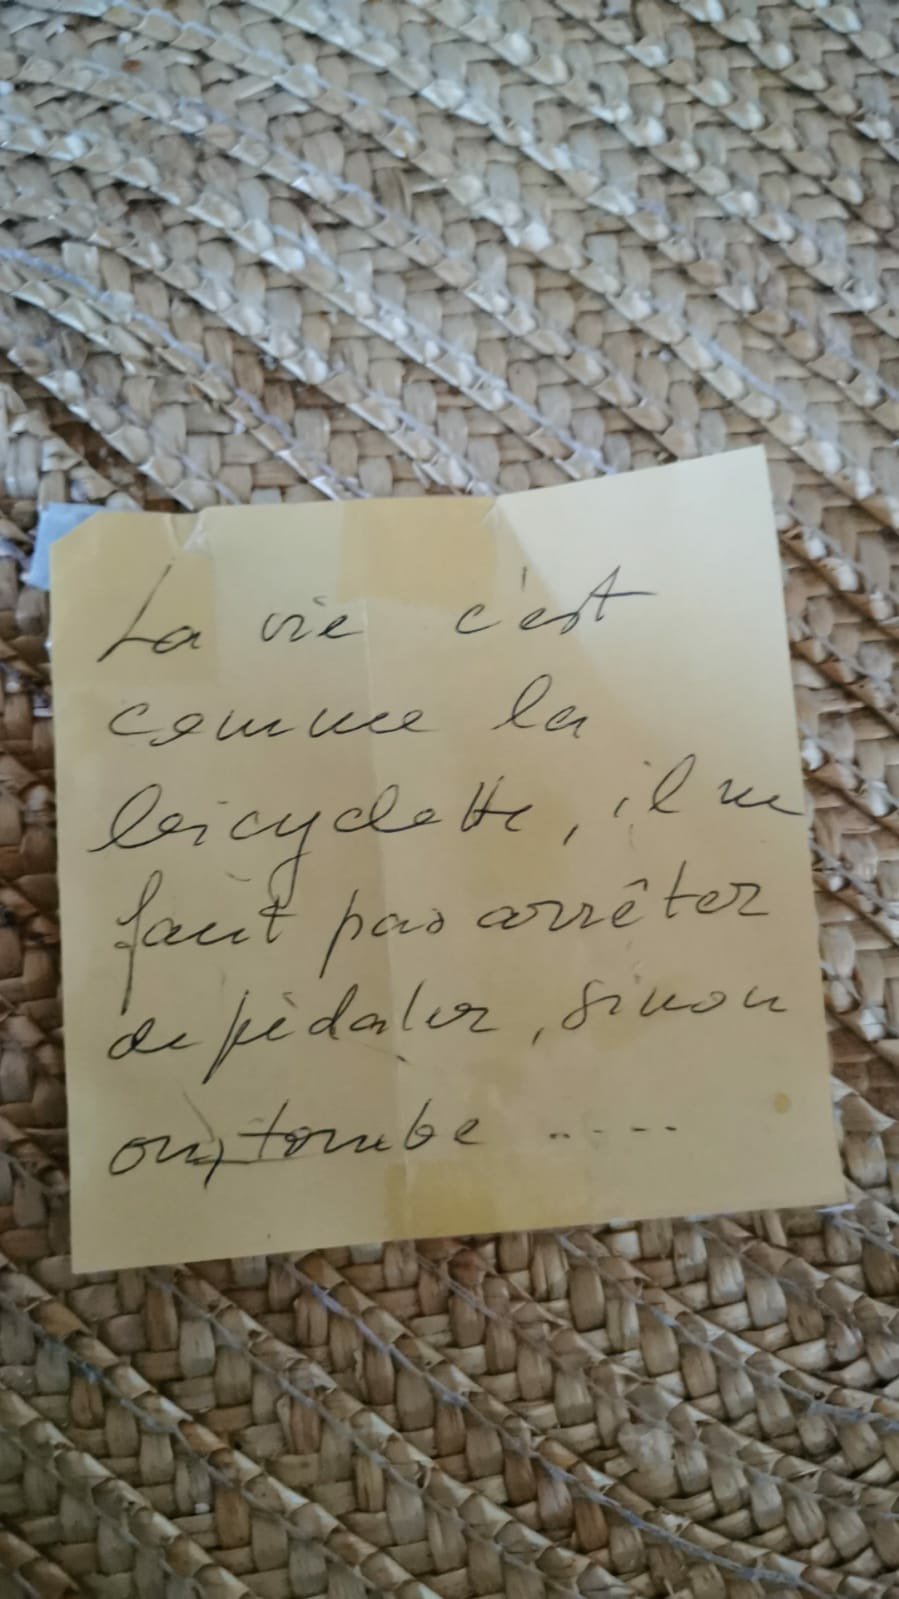 La vie c'est
comme la
bicyclette, il ne
faut pas arrêter
de pédaler, sinon
on, tombe .....